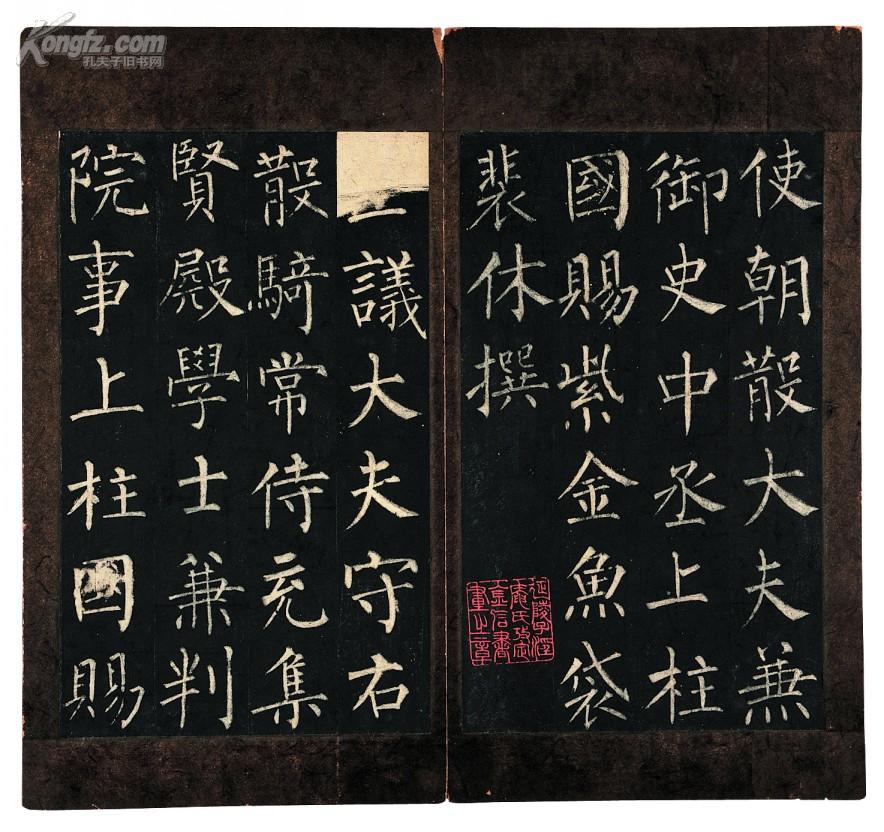 使朝散大夫兼
御史中丞上柱
國賜紫金魚袋
裴休撰
議大夫守右
散騎常侍充集
賢殿學士兼判
院事上柱國賜
Kongfz.com
孔夫子旧书网